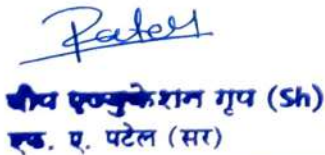 Patel
दीप एज्युकेशन गृप (Sh)
एफ. ए. पटेल (सर)